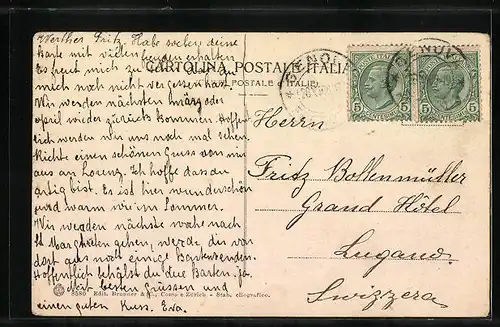 Werther Fritz. Habe soeben deine
Karte mit vielen Freuden erhalten
Es freut mich zu
mich noch nicht vergessen hast.
Wir werden nächsten März oder
April wieder zurück kommen. Hoffen
werden wir uns noch mal sehen.
Richte einen schönen Gruss von mir
aus an Lorenz. Ich hoffe dass du
artig bist. Es ist hier wunderschön
und warm wie im Sommer.
Wir werden nächste Woche nach
St Margherita gehen, werde dir von
dort aus noch einige Karten senden.
Hoffentlich behälst du die Karten. ja
Mit besten Grüssen und
einen guten Kuss. Eva.
CARTOLINA POSTALE ITALIANA
POSTALE D'ITALIE)
GENOVA
POSTE ITALIANE
5 5
CENTESIMI 5
Herrn
Fritz Bollenmüller
Grand Hôtel
Lugano.
Swizzera
8580 Edit. Brunner & C., Como e Zürich - Stab. eliografico.